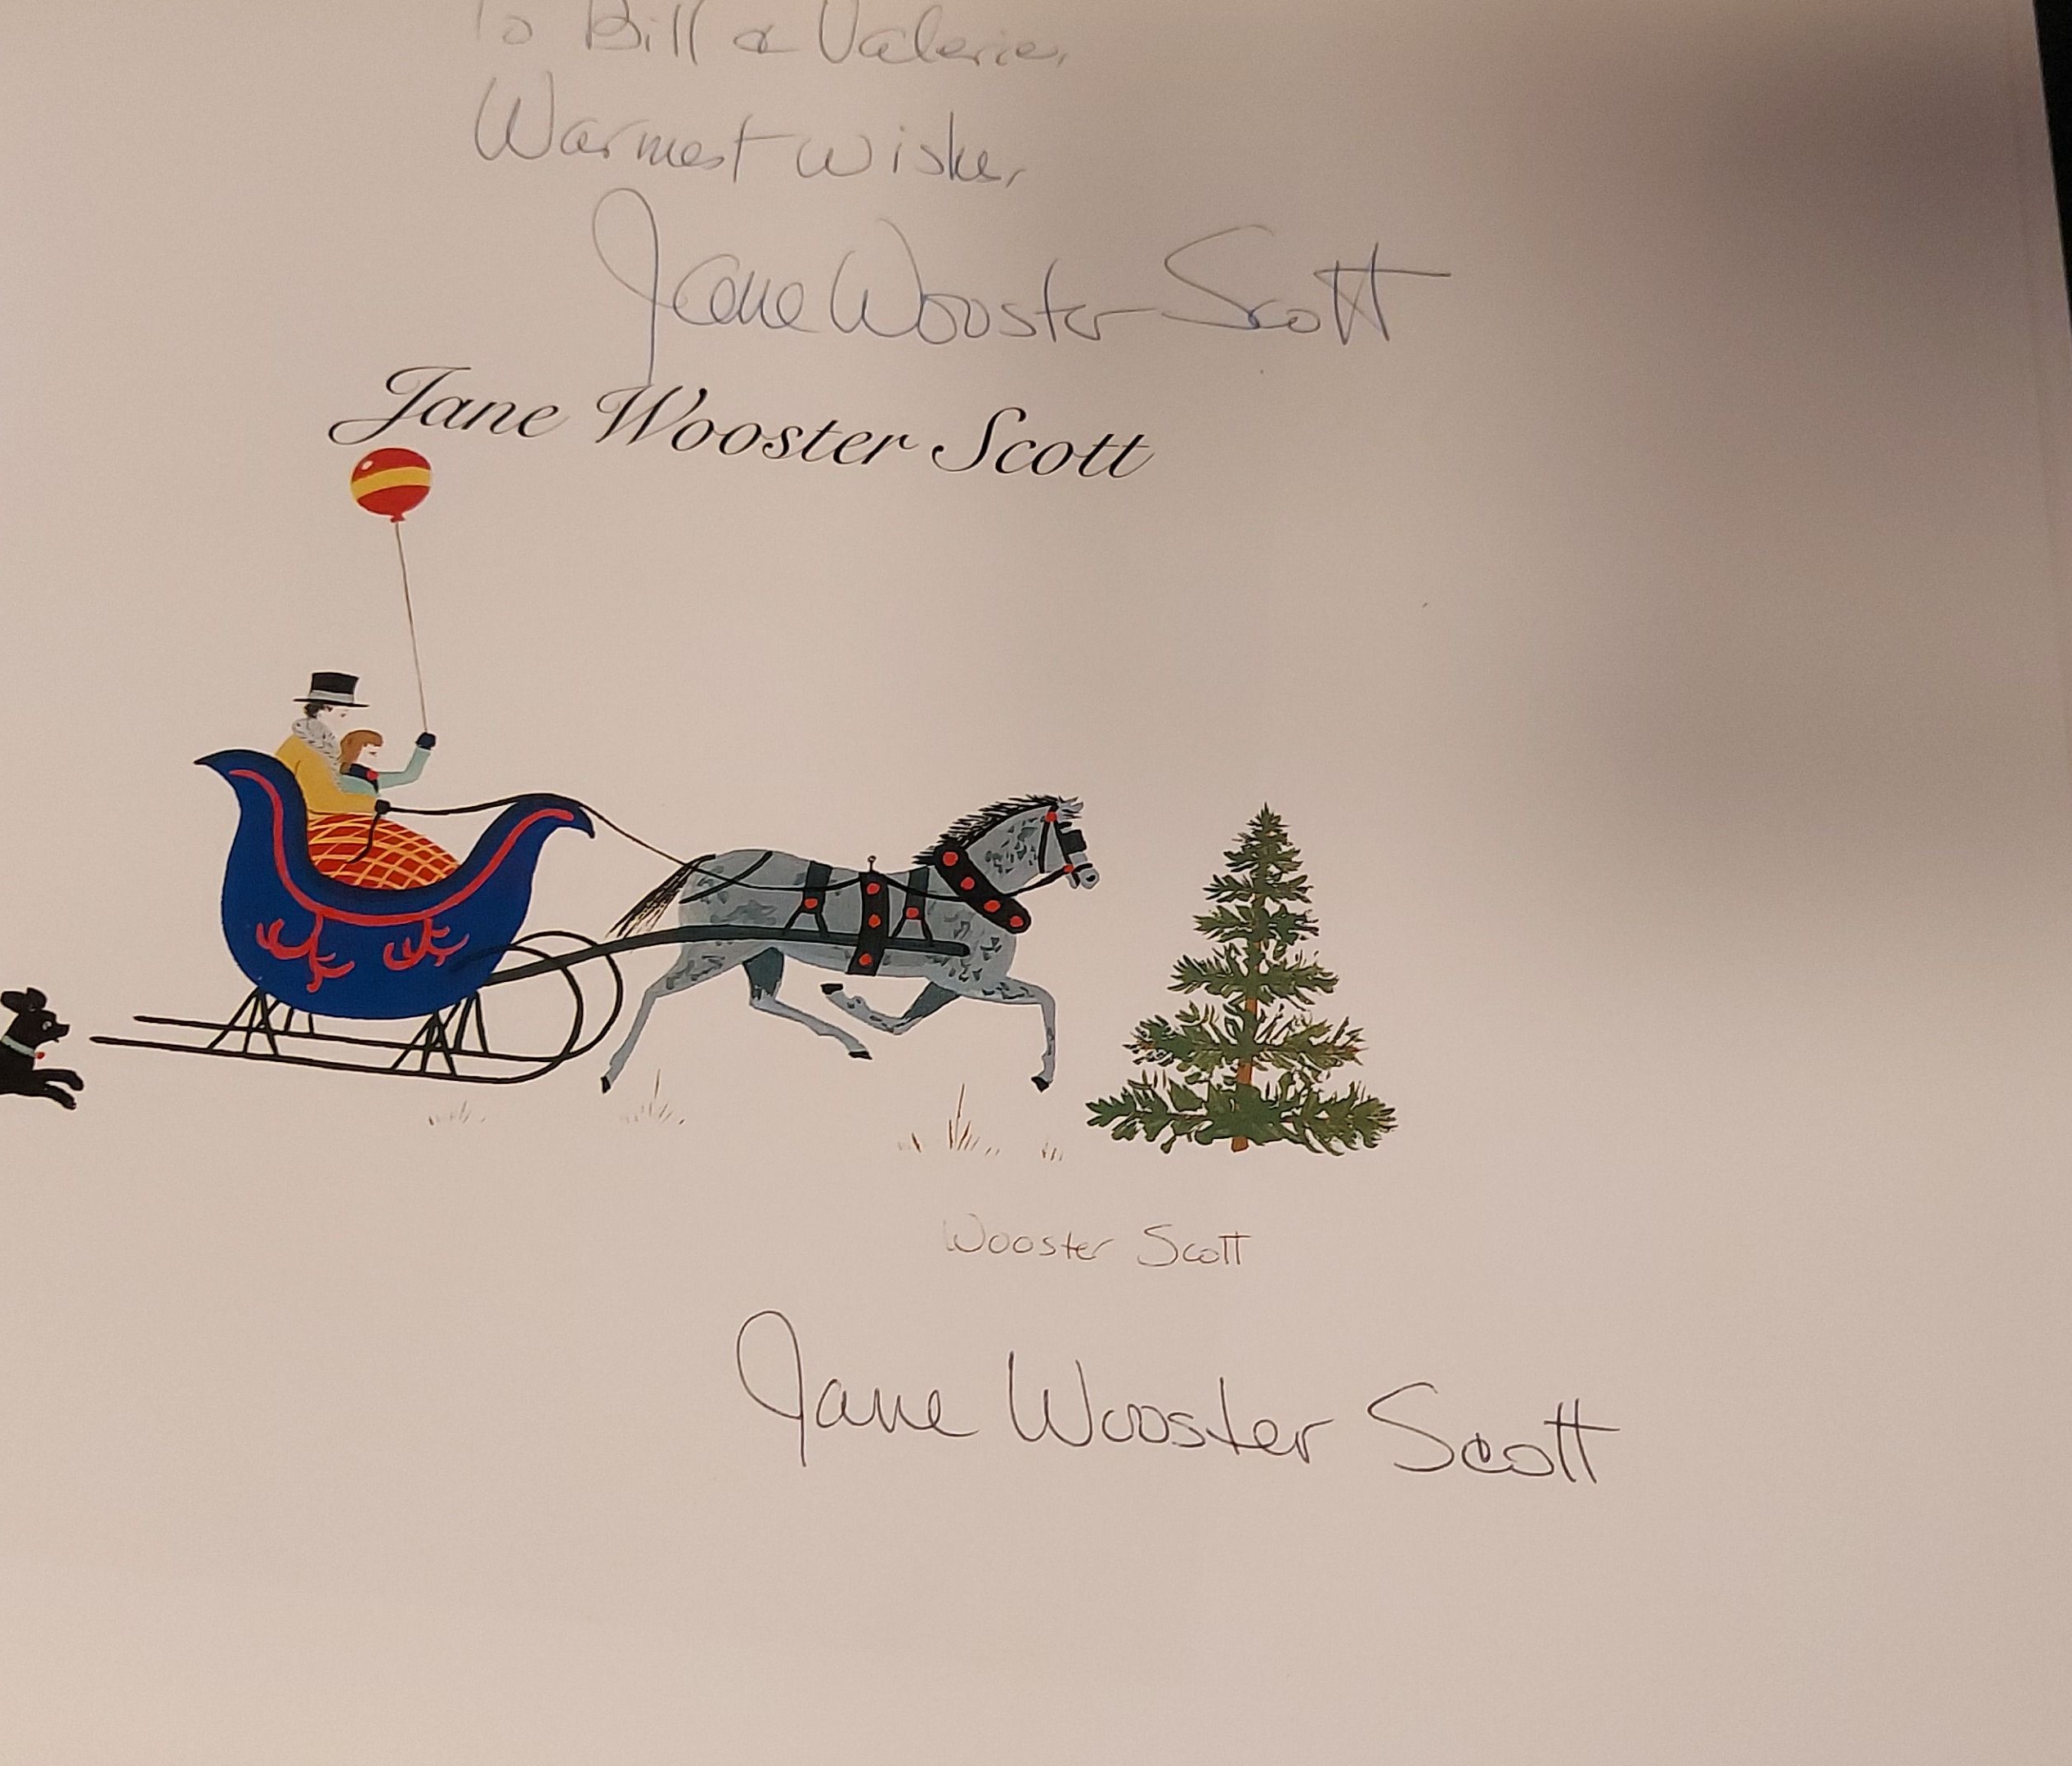 To Bill & Valerie,
Warmest wishes,
Jane Wooster Scott
Jane Wooster Scott
Wooster Scott
Jane Wooster Scott